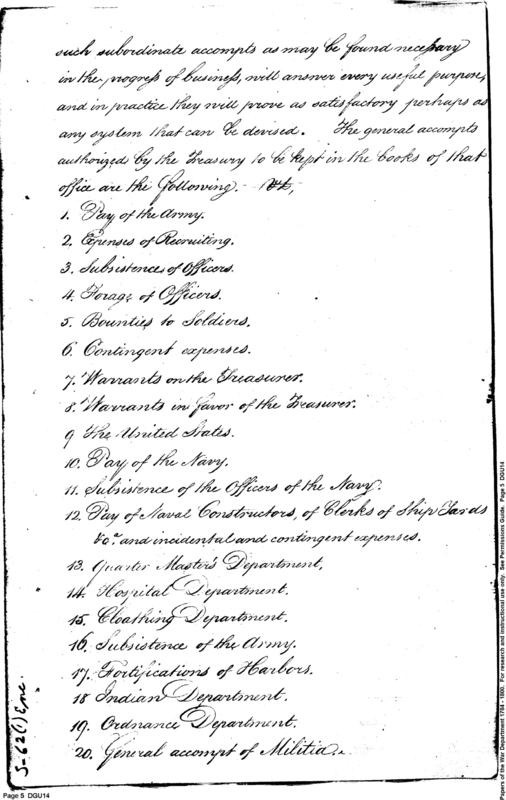 such subordinate accompts as may be found necessary
in the progress of business, will answer every useful purpose,
and in practice they will prove as satisfactory perhaps as
any system that can be devised. The general accompts
authorized by the Treasury to be kept in the books of that
office are the following. Vt,
1. Pay of the Army.
2. Expenses of Recruiting.
3. Subsistence of Officers.
4. Forage of Officers.
5. Bounties to Soldiers.
6. Contingent expenses.
7. Warrants on the Treasurer.
8. Warrants in favor of the Treasurer.
9 The United States.
10. Pay of the Navy.
11. Subsistence of the Officers of the Navy.
12. Pay of Naval Constructors, of Clerks of Ship Yards
&c. and incidental and contingent expenses.
13. Quarter Master's Department.
14. Hospital Department.
15. Cloathing Department.
16. Subsistence of the Army.
17. Fortifications of Harbors.
18 Indian Department.
19. Ordnance Department.
20. General accompt of Militia.
S-62(1) Enc.
Page 5 DGU14
Papers of the War Department 1784 - 1800. For research and instructional use only. See Permissions Guide. Page 5 DGU14